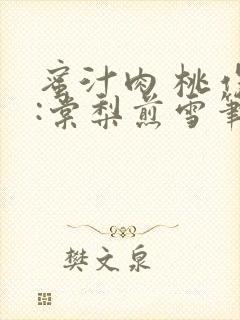 蜜汁肉桃作
:棠梨煎雪筆
樊文泉